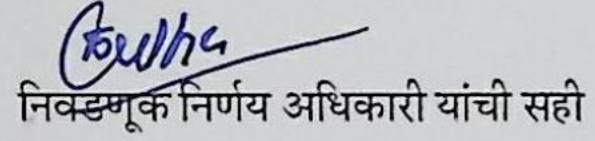 निवडणूक निर्णय अधिकारी यांची सही